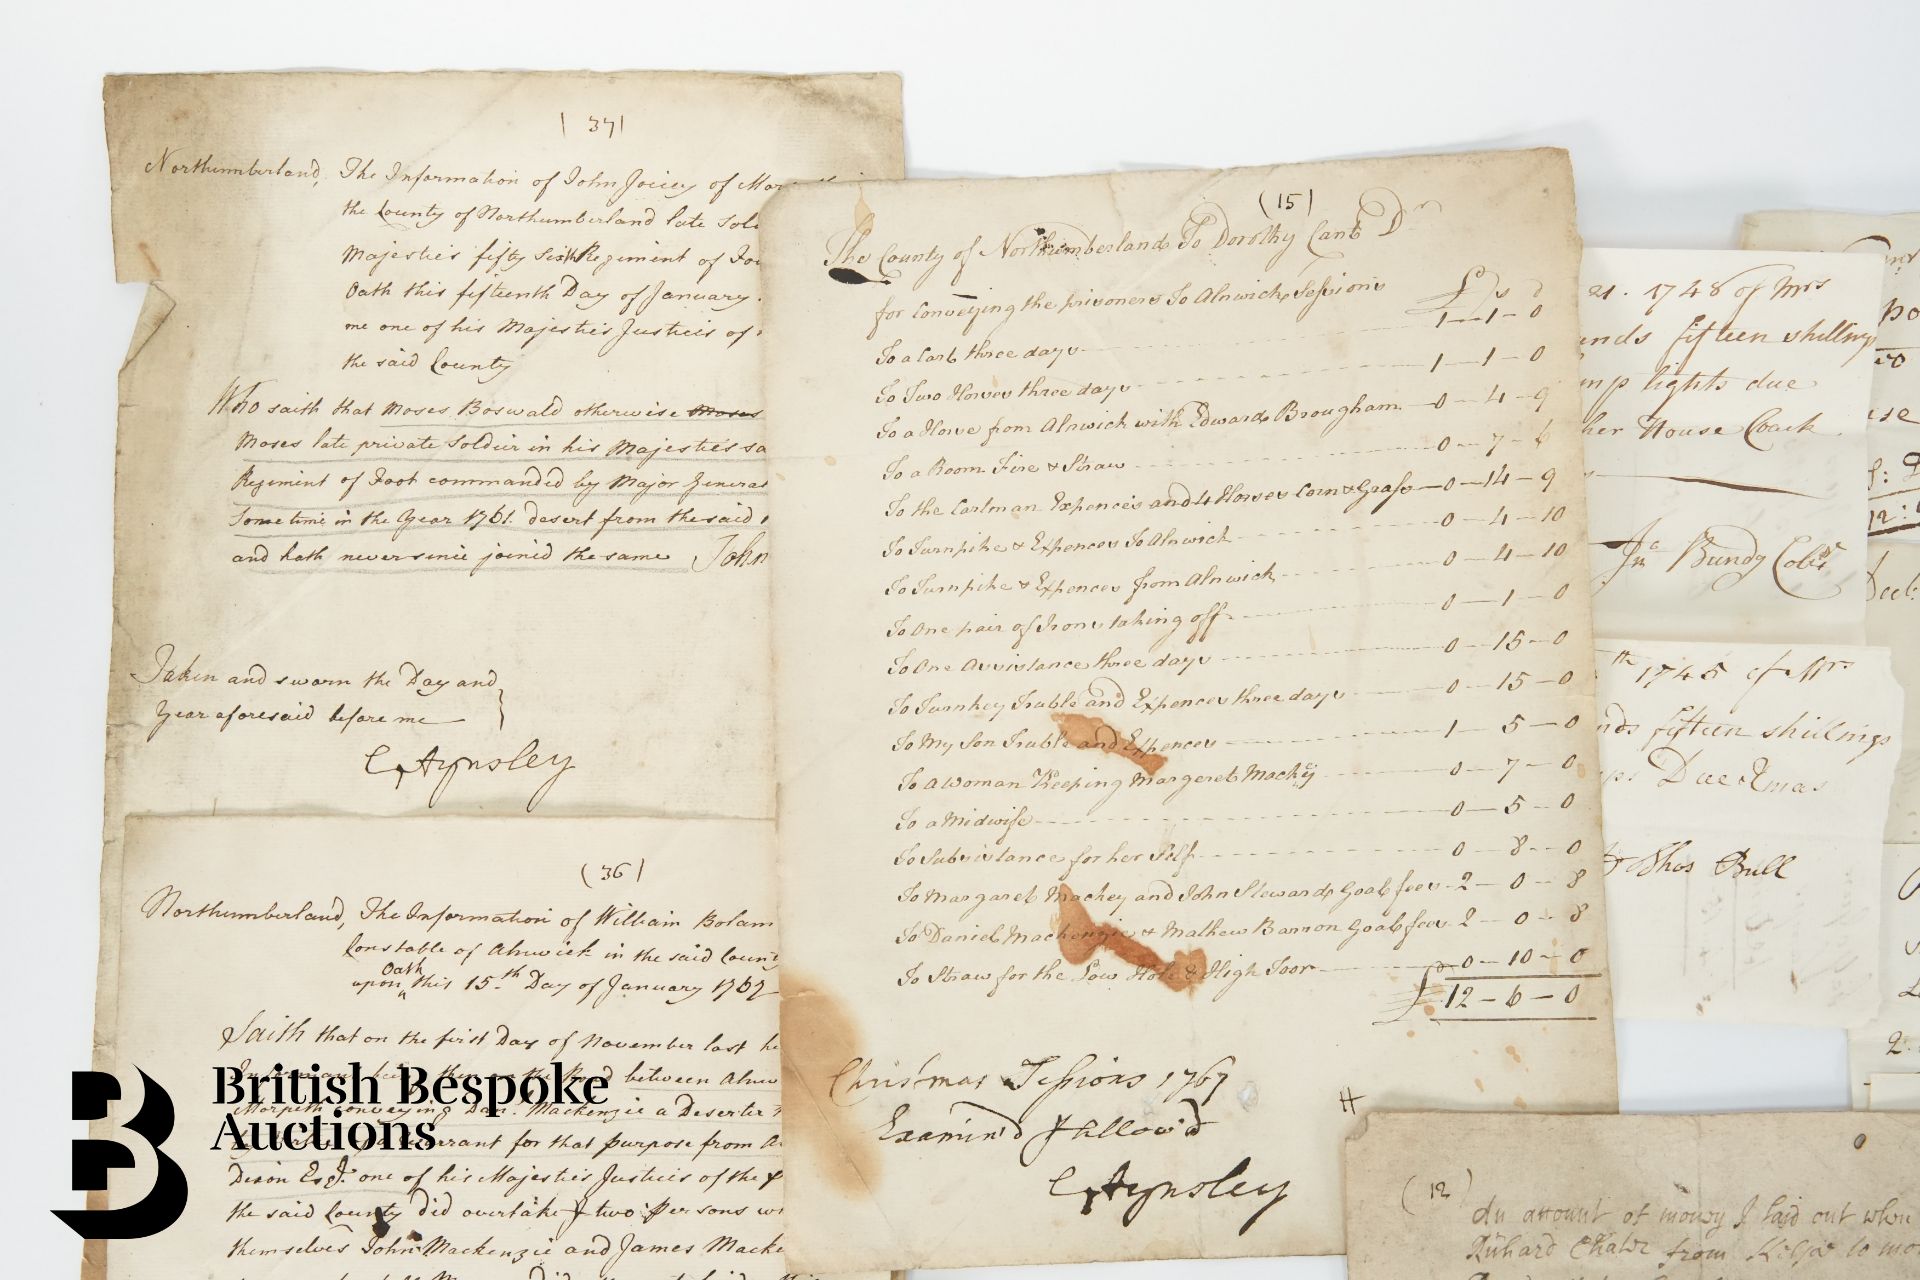 (37)
Northumberland, The Information of John Joicey of
the County of Northumberland late
Majesties fifty Sixth Regiment of
Oath this fifteenth Day of January
me one of his Majesties Justices of
the said County
Who saith that Moses Boswald otherwise Moses
Moses late private Soldier in his Majesties
Regiment of Foot commanded by Major General
Some time in the Year 1761 desert from the said
and hath never since joined the same John
Taken and sworn the Day and
Year aforesaid before me
C Aynsley
(36)
Northumberland, The Information of William Bolam
Constable of Alnwick in the said County
Oath
upon this 15th Day of January 1767
Saith that on the first Day of November last he
between
Morpeth conveying Dan. Mackenzie a Deserter
Warrant for that purpose from
Dixon Esqr. one of his Majesties Justices of the
the said County did overtake two persons
themselves John Mackenzie and James
(15)
The County of Northumberland To Dorothy Dr
for Conveying the prisoners To Alnwick Sessions
£ s d
To a Cart three days 1-1-0
To Two Horses three days 1-1-0
To a Horse from Alnwick with Edward Brougham 0-4-9
To a Room Fire & Straw 0-7-6
To the Cartman Expences and 4 Horses Corn & Grass 0-14-9
To Turnpike & Expences To Alnwick 0-4-10
To Turnpike & Expences from Alnwick 0-4-10
To One pair of Irons taking off 0-1-0
To One Assistance three days 0-15-0
To Turnkey Truble and Expences three days 0-15-0
To My Son Truble and Expences 1-5-0
To a Woman Keeping Margeret Mackey 0-7-0
To a Midwife 0-5-0
To Subsistance for her Self 0-8-0
To Margaret Mackey and John Steward Goal fees 2-0-8
To Daniel Mackenzie & Mathew Barron Goal fees 2-0-8
To Straw for the Low Hole & High Toor 0-10-0
£12-6-0
Christmas Sessions 1767
Examin'd & allow'd
C Aynsley
21. 1748 of Mrs
fifteen shillings
lights due
her House Cook
Jn Bundy
1745 of Mrs
fifteen shillings
Due Xmas
Thos Bull
(12)
An acount of mony I laid out when
Richard from
British Bespoke
Auctions